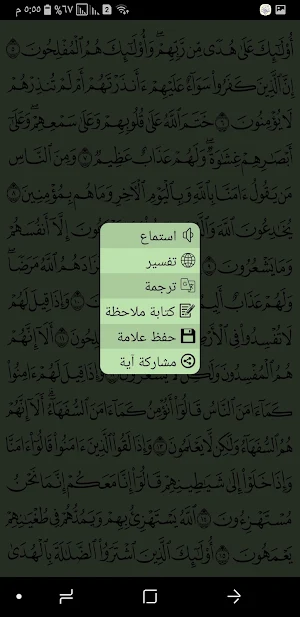 ٥:٥٥ م ٦٧% 2
أُوْلَٰٓئِكَ عَلَىٰ هُدًى مِّن رَّبِّهِمْ ۖ وَأُوْلَٰٓئِكَ هُمُ ٱلْمُفْلِحُونَ ٥
إِنَّ ٱلَّذِينَ كَفَرُوا۟ سَوَآءٌ عَلَيْهِمْ ءَأَنذَرْتَهُمْ أَمْ لَمْ تُنذِرْهُمْ
لَا يُؤْمِنُونَ ٦ خَتَمَ ٱللَّهُ عَلَىٰ قُلُوبِهِمْ وَعَلَىٰ سَمْعِهِمْ ۖ وَعَلَىٰٓ
أَبْصَٰرِهِمْ غِشَٰوَةٌ ۖ وَلَهُمْ عَذَابٌ عَظِيمٌ ٧ وَمِنَ ٱلنَّاسِ
مَن يَقُولُ ءَامَنَّا بِٱللَّهِ وَبِٱلْيَوْمِ ٱلْءَاخِرِ وَمَا هُم بِمُؤْمِنِينَ ٨
يُخَٰدِعُونَ ٱللَّهَ وَٱلَّذِينَ إِلَّآ أَنفُسَهُمْ
وَمَا يَشْعُرُونَ ٩ فَزَادَهُمُ ٱللَّهُ مَرَضًا ۖ
وَلَهُمْ عَذَابٌ وَإِذَا قِيلَ لَهُمْ
لَا تُفْسِدُوا۟ فِى ٱلْأَرْضِ ١١ أَلَآ إِنَّهُمْ
هُمُ ٱلْمُفْسِدُونَ وَلَٰكِن لَّا يَشْعُرُونَ ١٢ وَإِذَا قِيلَ لَهُمْ ءَامِنُوا۟
كَمَآ ءَامَنَ ٱلنَّاسُ قَالُوٓا۟ أَنُؤْمِنُ كَمَآ ءَامَنَ ٱلسُّفَهَآءُ ۗ أَلَآ إِنَّهُمْ
هُمُ ٱلسُّفَهَآءُ وَلَٰكِن لَّا يَعْلَمُونَ ١٣ وَإِذَا لَقُوا۟ ٱلَّذِينَ ءَامَنُوا۟ قَالُوٓا۟ ءَامَنَّا
وَإِذَا خَلَوْا۟ إِلَىٰ شَيَٰطِينِهِمْ قَالُوٓا۟ إِنَّا مَعَكُمْ إِنَّمَا نَحْنُ
مُسْتَهْزِءُونَ ١٤ ٱللَّهُ يَسْتَهْزِئُ بِهِمْ وَيَمُدُّهُمْ فِى طُغْيَٰنِهِمْ
يَعْمَهُونَ ١٥ أُوْلَٰٓئِكَ ٱلَّذِينَ ٱشْتَرَوُا۟ ٱلضَّلَٰلَةَ بِٱلْهُدَىٰ
استماع
تفسير
ترجمة
كتابة ملاحظة
حفظ علامة
مشاركة آية